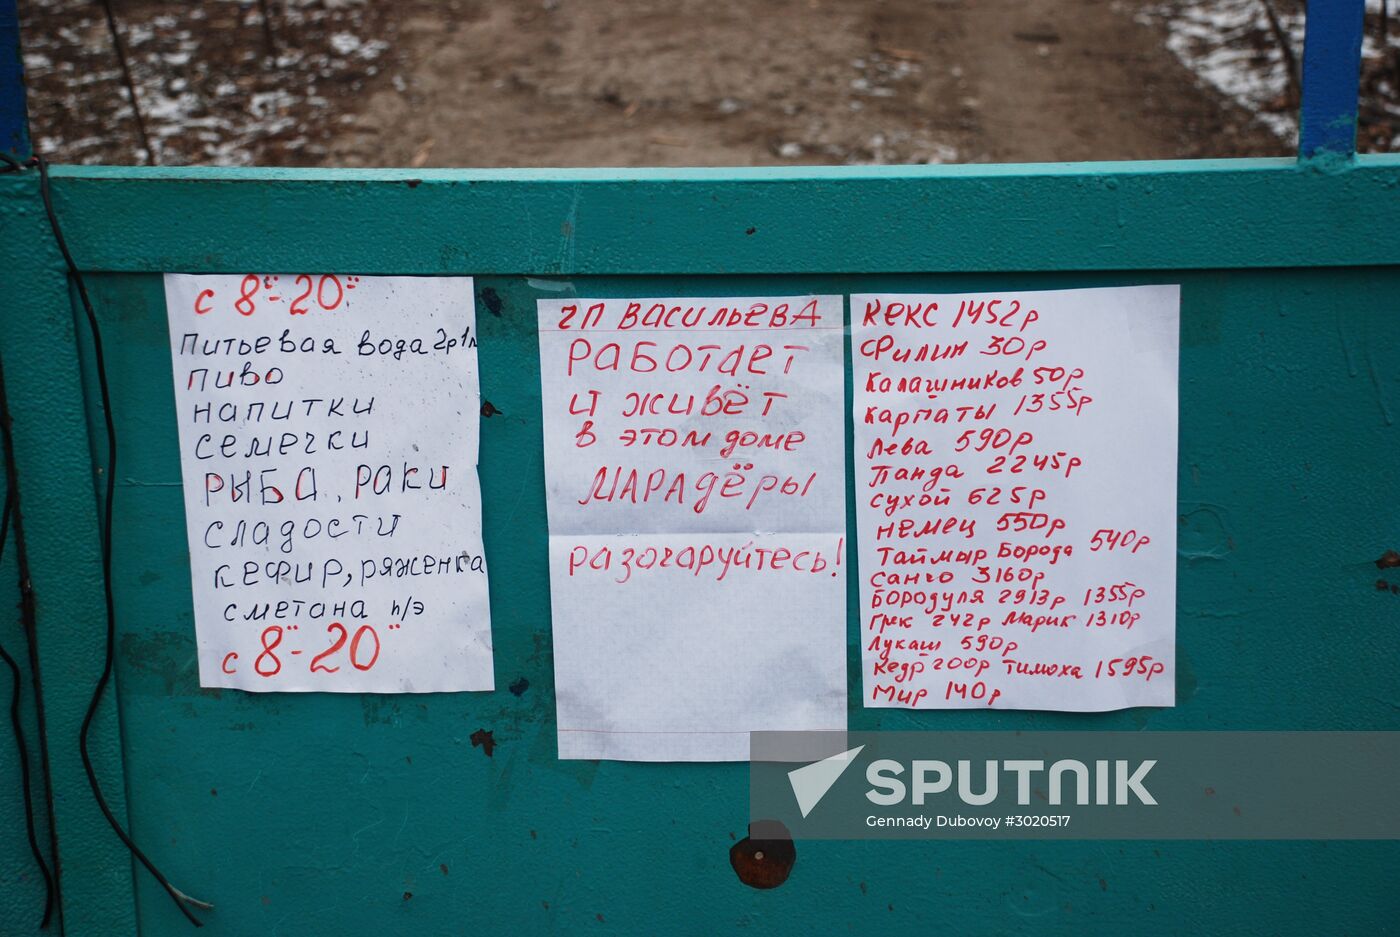 с 8°°-20°°
Питьевая вода 2р 1л
пиво
напитки
семечки
РЫБА, РАКИ
сладости
кефир, ряженка
сметана п/э
с 8°°-20°°
ЧП ВАСИЛЬЕВА
РАБОТАЕТ
И ЖИВЁТ
в этом доме
МАРАДЁРЫ
разочаруйтесь!
КЕКС 1452р
Филин 30р
Калашников 50р
Карпаты 1355р
Лева 590р
Панда 2245р
Сухой 625р
Немец 550р
Таймыр Борода 540р
Санчо 3160р
Бородуля 2913р 1355р
Грек 242р Марик 1310р
Лукаш 590р
Кедр 200р Тимоха 1595р
Мир 140р
SPUTNIK
Gennady Dubovoy #3020517